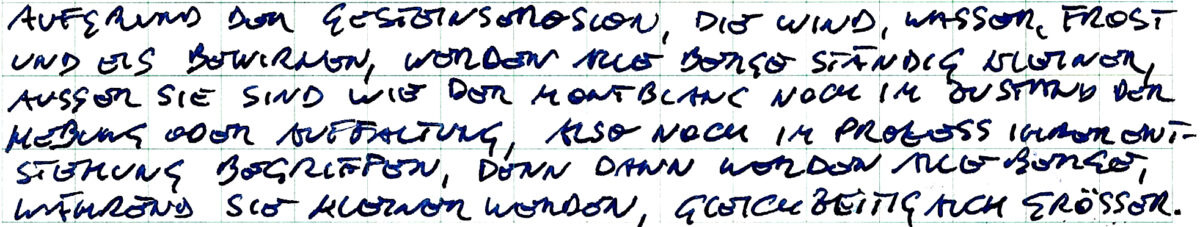 AUFGRUND DER GESTEINSEROSION, DIE WIND, WASSER, FROST
UND EIS BEWIRKEN, WERDEN ALLE BERGE STÄNDIG KLEINER,
AUSSER SIE SIND WIE DER MONTBLANC NOCH IM ZUSTAND DER
HEBUNG ODER AUFFALTUNG, ALSO NOCH IM PROZESS IHRER ENT-
STEHUNG BEGRIFFEN, DENN DANN WERDEN ALLE BERGE,
WÄHREND SIE KLEINER WERDEN, GLEICHZEITIG AUCH GRÖSSER.